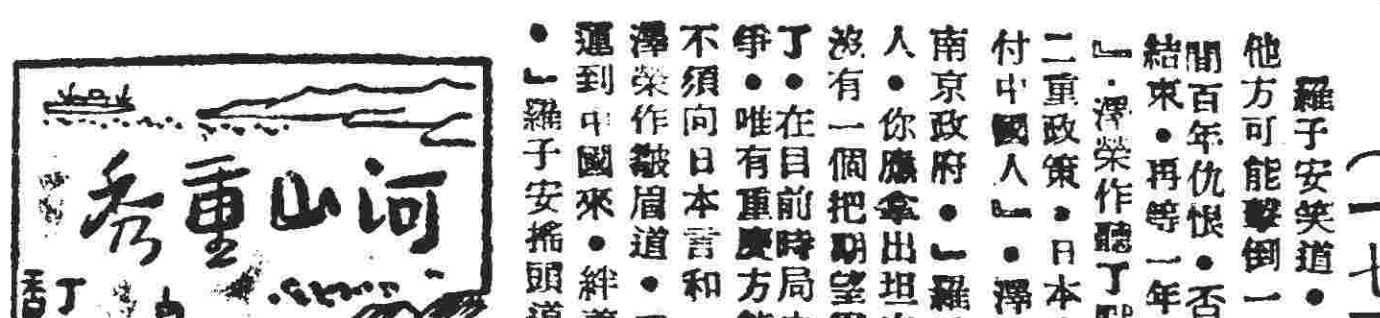 （一七
羅子安笑道●
他方可能擊倒一
間百年仇恨●否
結束●再等一年
』●澤榮作聽了
二重政策●日本
付中國人』●澤
南京政府●』羅
人●你應拿出坦
沒有一個把期望
了●在目前時局
爭●唯有重慶方
不須向日本言和
澤榮作皺眉道●
運到中國來●絆
●』羅子安搖頭道
河山重秀
丁
香